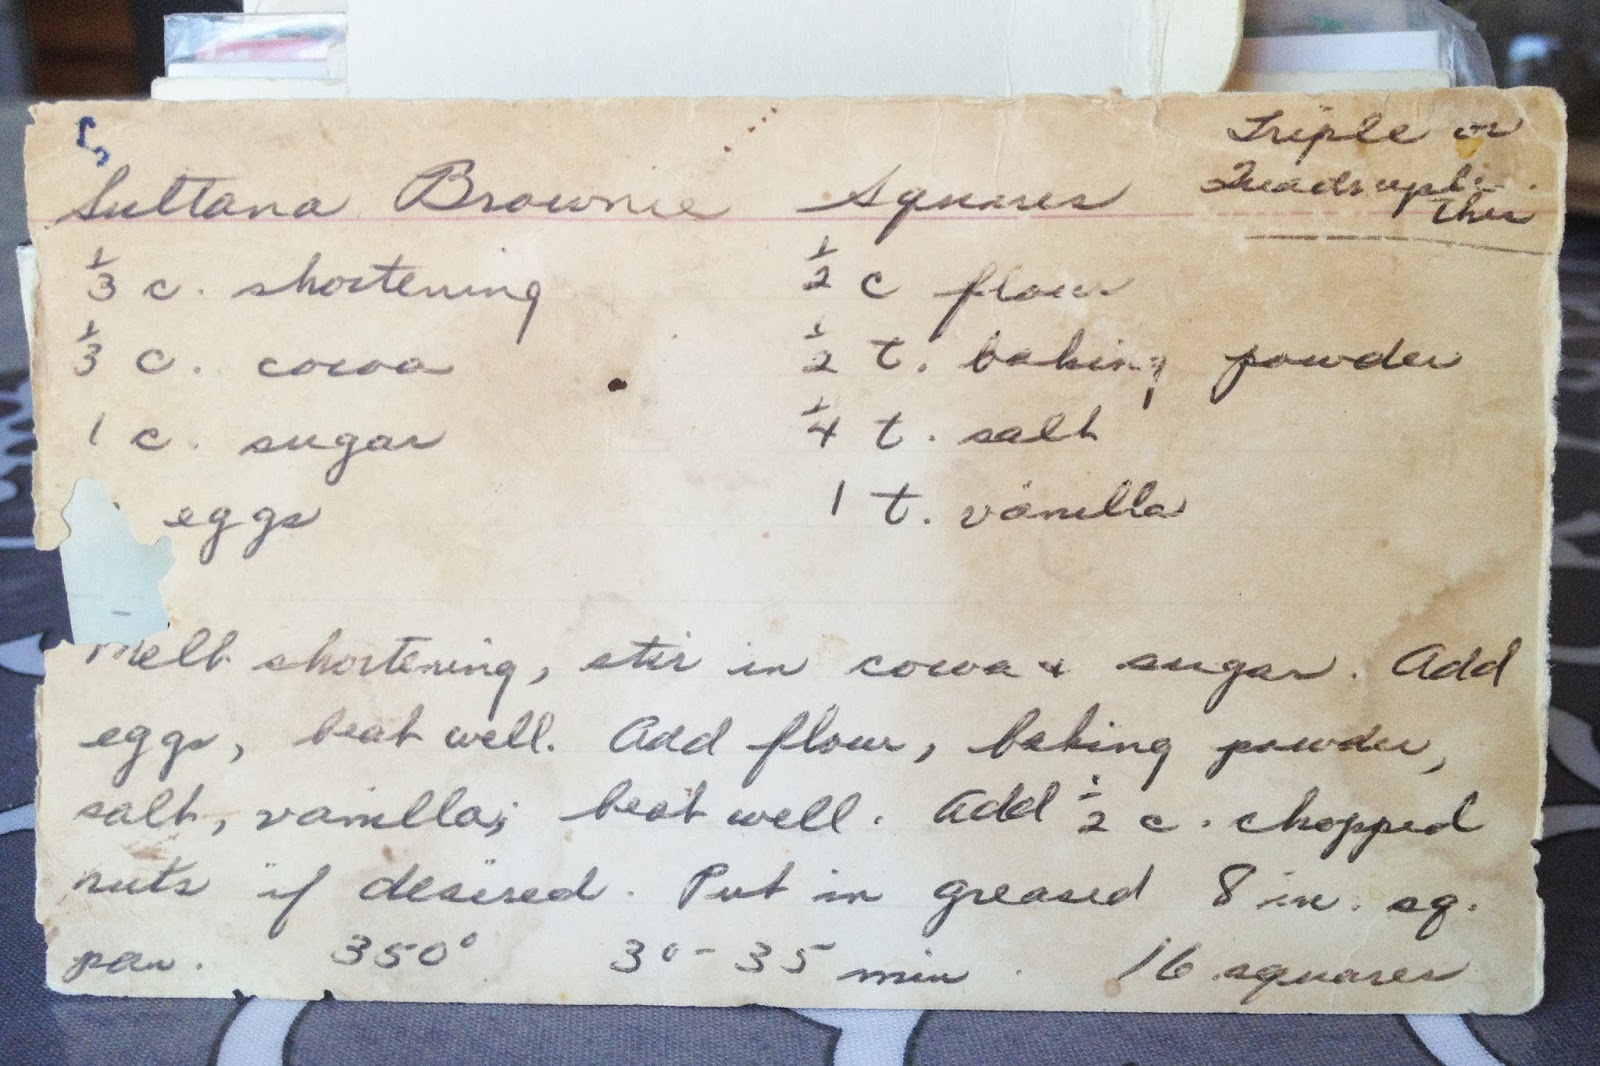 Triple or
Quadruple
this
Sultana Brownie Squares
1/3 c. shortening
1/3 c. cocoa
1 c. sugar
eggs
1/2 c flour
1/2 t. baking powder
1/4 t. salt
1 t. vanilla
Melt shortening, stir in cocoa + sugar. Add
eggs, beat well. Add flour, baking powder,
salt, vanilla; beat well. Add 1/2 c. chopped
nuts if desired. Put in greased 8 in. sq.
pan. 350° 30-35 min. 16 squares